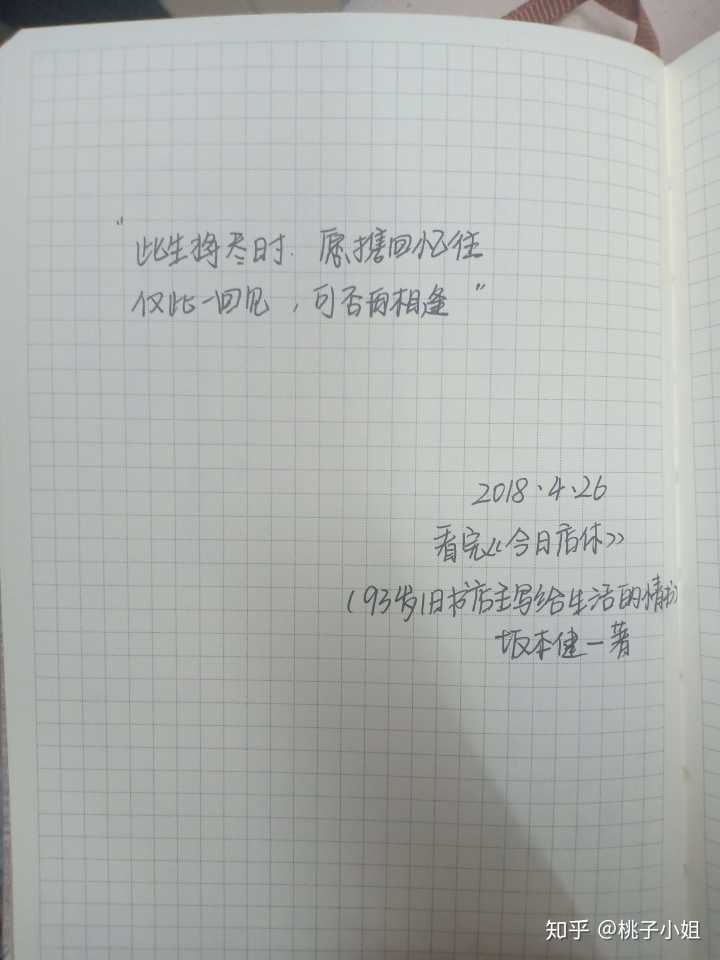 “此生将尽时.愿携回忆往
仅此一回见，可否再相逢”
2018.4.26
看完《今日店休》
（93岁旧书店主写给生活的情书）
坂本健一著
知乎 @桃子小姐